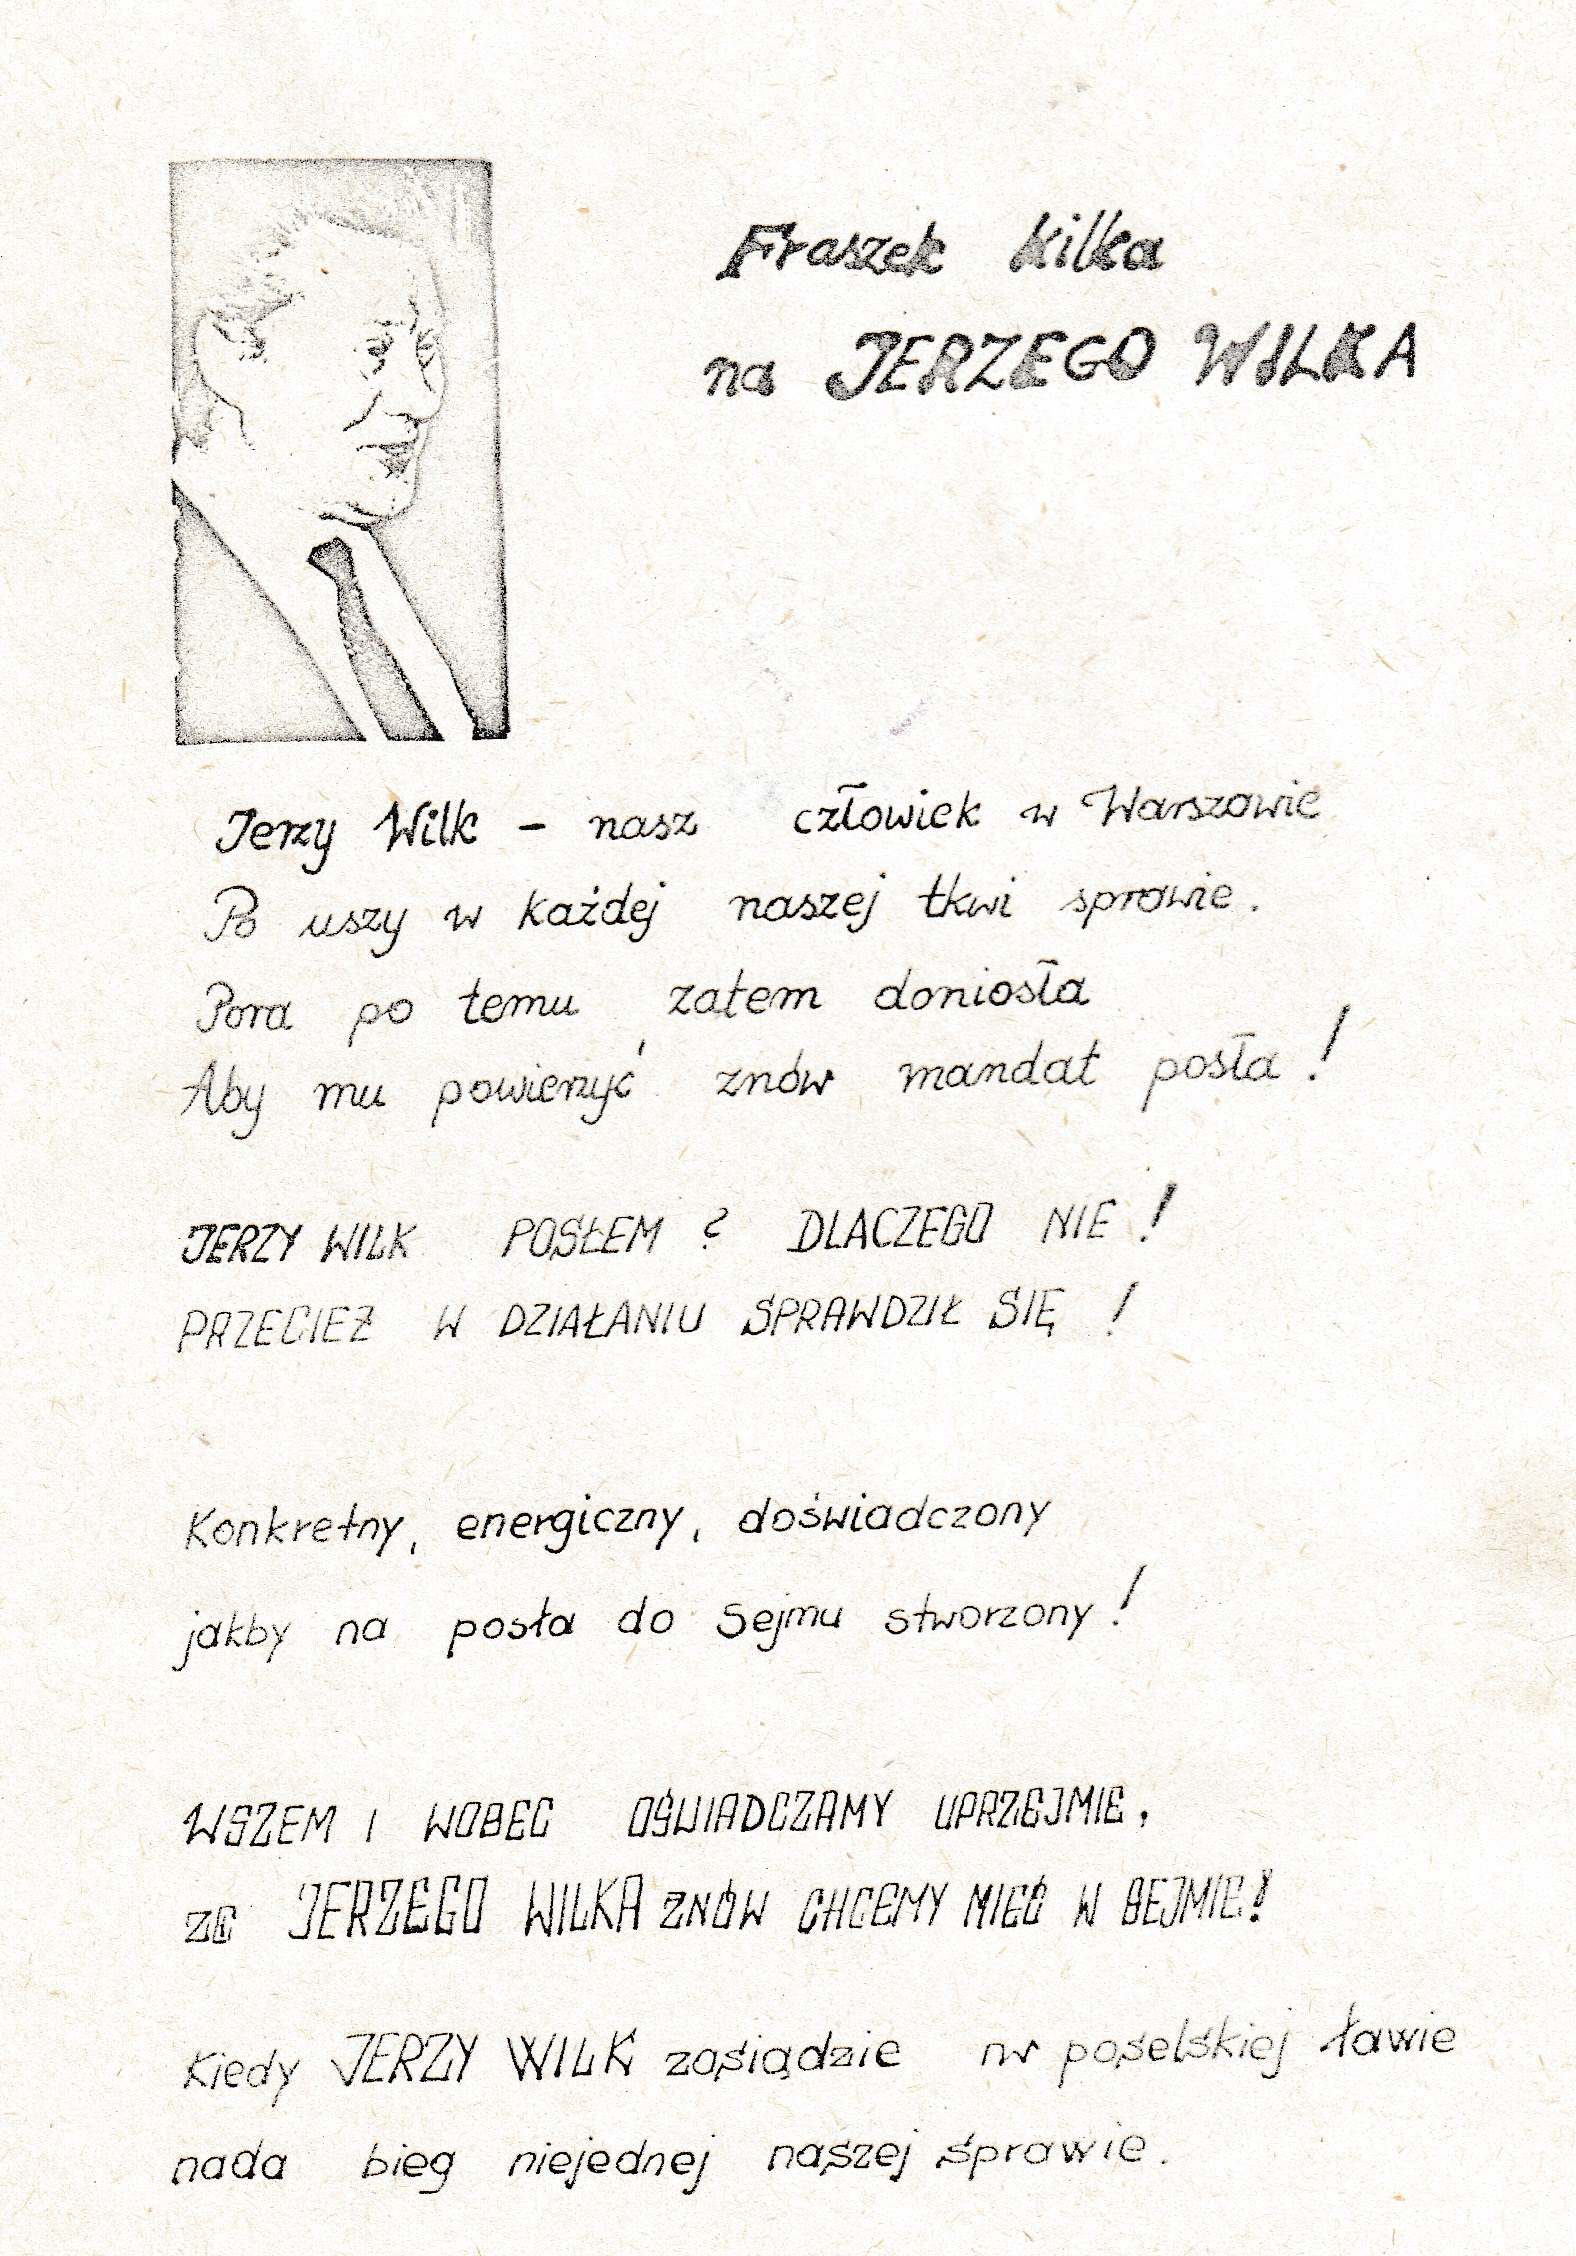 Fraszek kilka
na JERZEGO WILKA
Jerzy Wilk – nasz człowiek w Warszawie
Po uszy w każdej naszej tkwi sprawie.
Pora po temu zatem doniosła
Aby mu powierzyć znów mandat posła!
JERZY WILK POSŁEM? DLACZEGO NIE!
PRZECIEŻ W DZIAŁANIU SPRAWDZIŁ SIĘ!
Konkretny, energiczny, doświadczony
jakby na posła do Sejmu stworzony!
WSZEM I WOBEC OŚWIADCZAMY UPRZEJMIE,
ZE JERZEGO WILKA ZNÓW CHCEMY MIEĆ W SEJMIE!
Kiedy JERZY WILK zasiądzie w poselskiej ławie
nada bieg niejednej naszej sprawie.